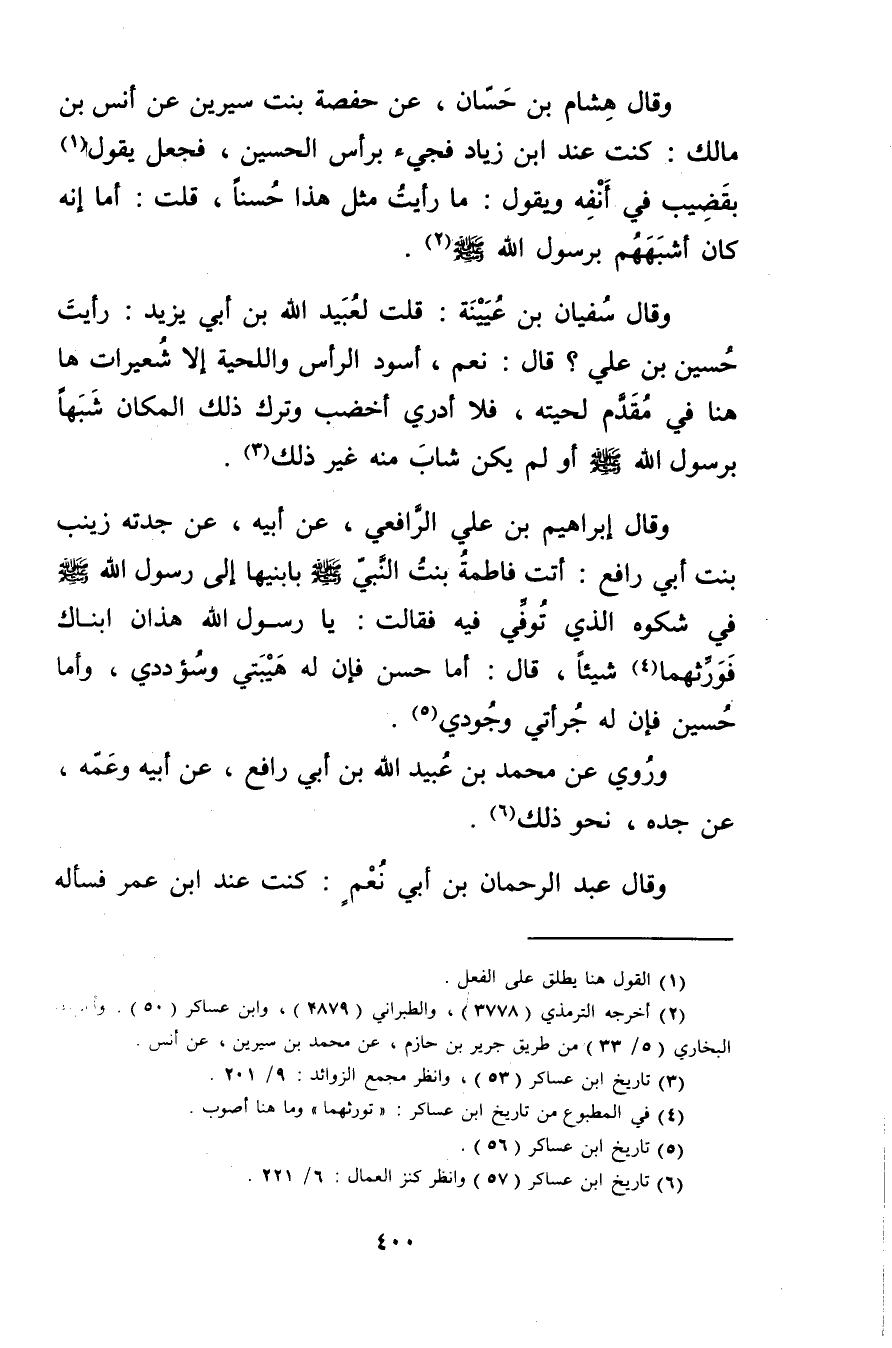 وقال هِشام بن حَسّان ، عن حفصة بنت سيرين عن أنس بن
مالك : كنت عند ابن زياد فجيء برأس الحسين ، فجعل يقول(١)
بقَضِيب في أَنْفِه ويقول : ما رأيتُ مثل هذا حُسناً ، قلت : أما إنه
كان أشبَهَهُم برسول الله ﷺ(٢) .
وقال سُفيان بن عُيَيْنَة : قلت لعُبَيد الله بن أبي يزيد : رأيتَ
حُسين بن علي ؟ قال : نعم ، أسود الرأس واللحية إلا شُعيرات ها
هنا في مُقَدَّم لحيته ، فلا أدري أخضب وترك ذلك المكان شَبَهاً
برسول الله ﷺ أو لم يكن شابَ منه غير ذلك(٣) .
وقال إبراهيم بن علي الرَّافعي ، عن أبيه ، عن جدته زينب
بنت أبي رافع : أتت فاطمةُ بنتُ النَّبيّ ﷺ بابنيها إلى رسول الله ﷺ
في شكوه الذي تُوفِّي فيه فقالت : يا رسول الله هذان ابناك
فَوَرِّثهما(٤) شيئاً ، قال : أما حسن فإن له هَيْبَتي وسُؤددي ، وأما
حُسين فإن له جُرأتي وجُودي(٥) .
ورُوي عن محمد بن عُبيد الله بن أبي رافع ، عن أبيه وعَمّه ،
عن جده ، نحو ذلك(٦) .
وقال عبد الرحمان بن أبي نُعْمٍ : كنت عند ابن عمر فسأله
(١) القول هنا يطلق على الفعل .
(٢) أخرجه الترمذي ( ٣٧٧٨ ) ، والطبراني ( ٢٨٧٩ ) ، وابن عساكر ( ٥٠ ) .
البخاري ( ٥/ ٣٣ ) من طريق جرير بن حازم ، عن محمد بن سيرين ، عن أنس .
(٣) تاريخ ابن عساكر ( ٥٣ ) ، وانظر مجمع الزوائد : ٩/ ٢٠١ .
(٤) في المطبوع من تاريخ ابن عساكر : « تورثهما » وما هنا أصوب .
(٥) تاريخ ابن عساكر ( ٥٦ ) .
(٦) تاريخ ابن عساكر ( ٥٧ ) وانظر كنز العمال : ٦/ ٢٢١ .
٤٠٠